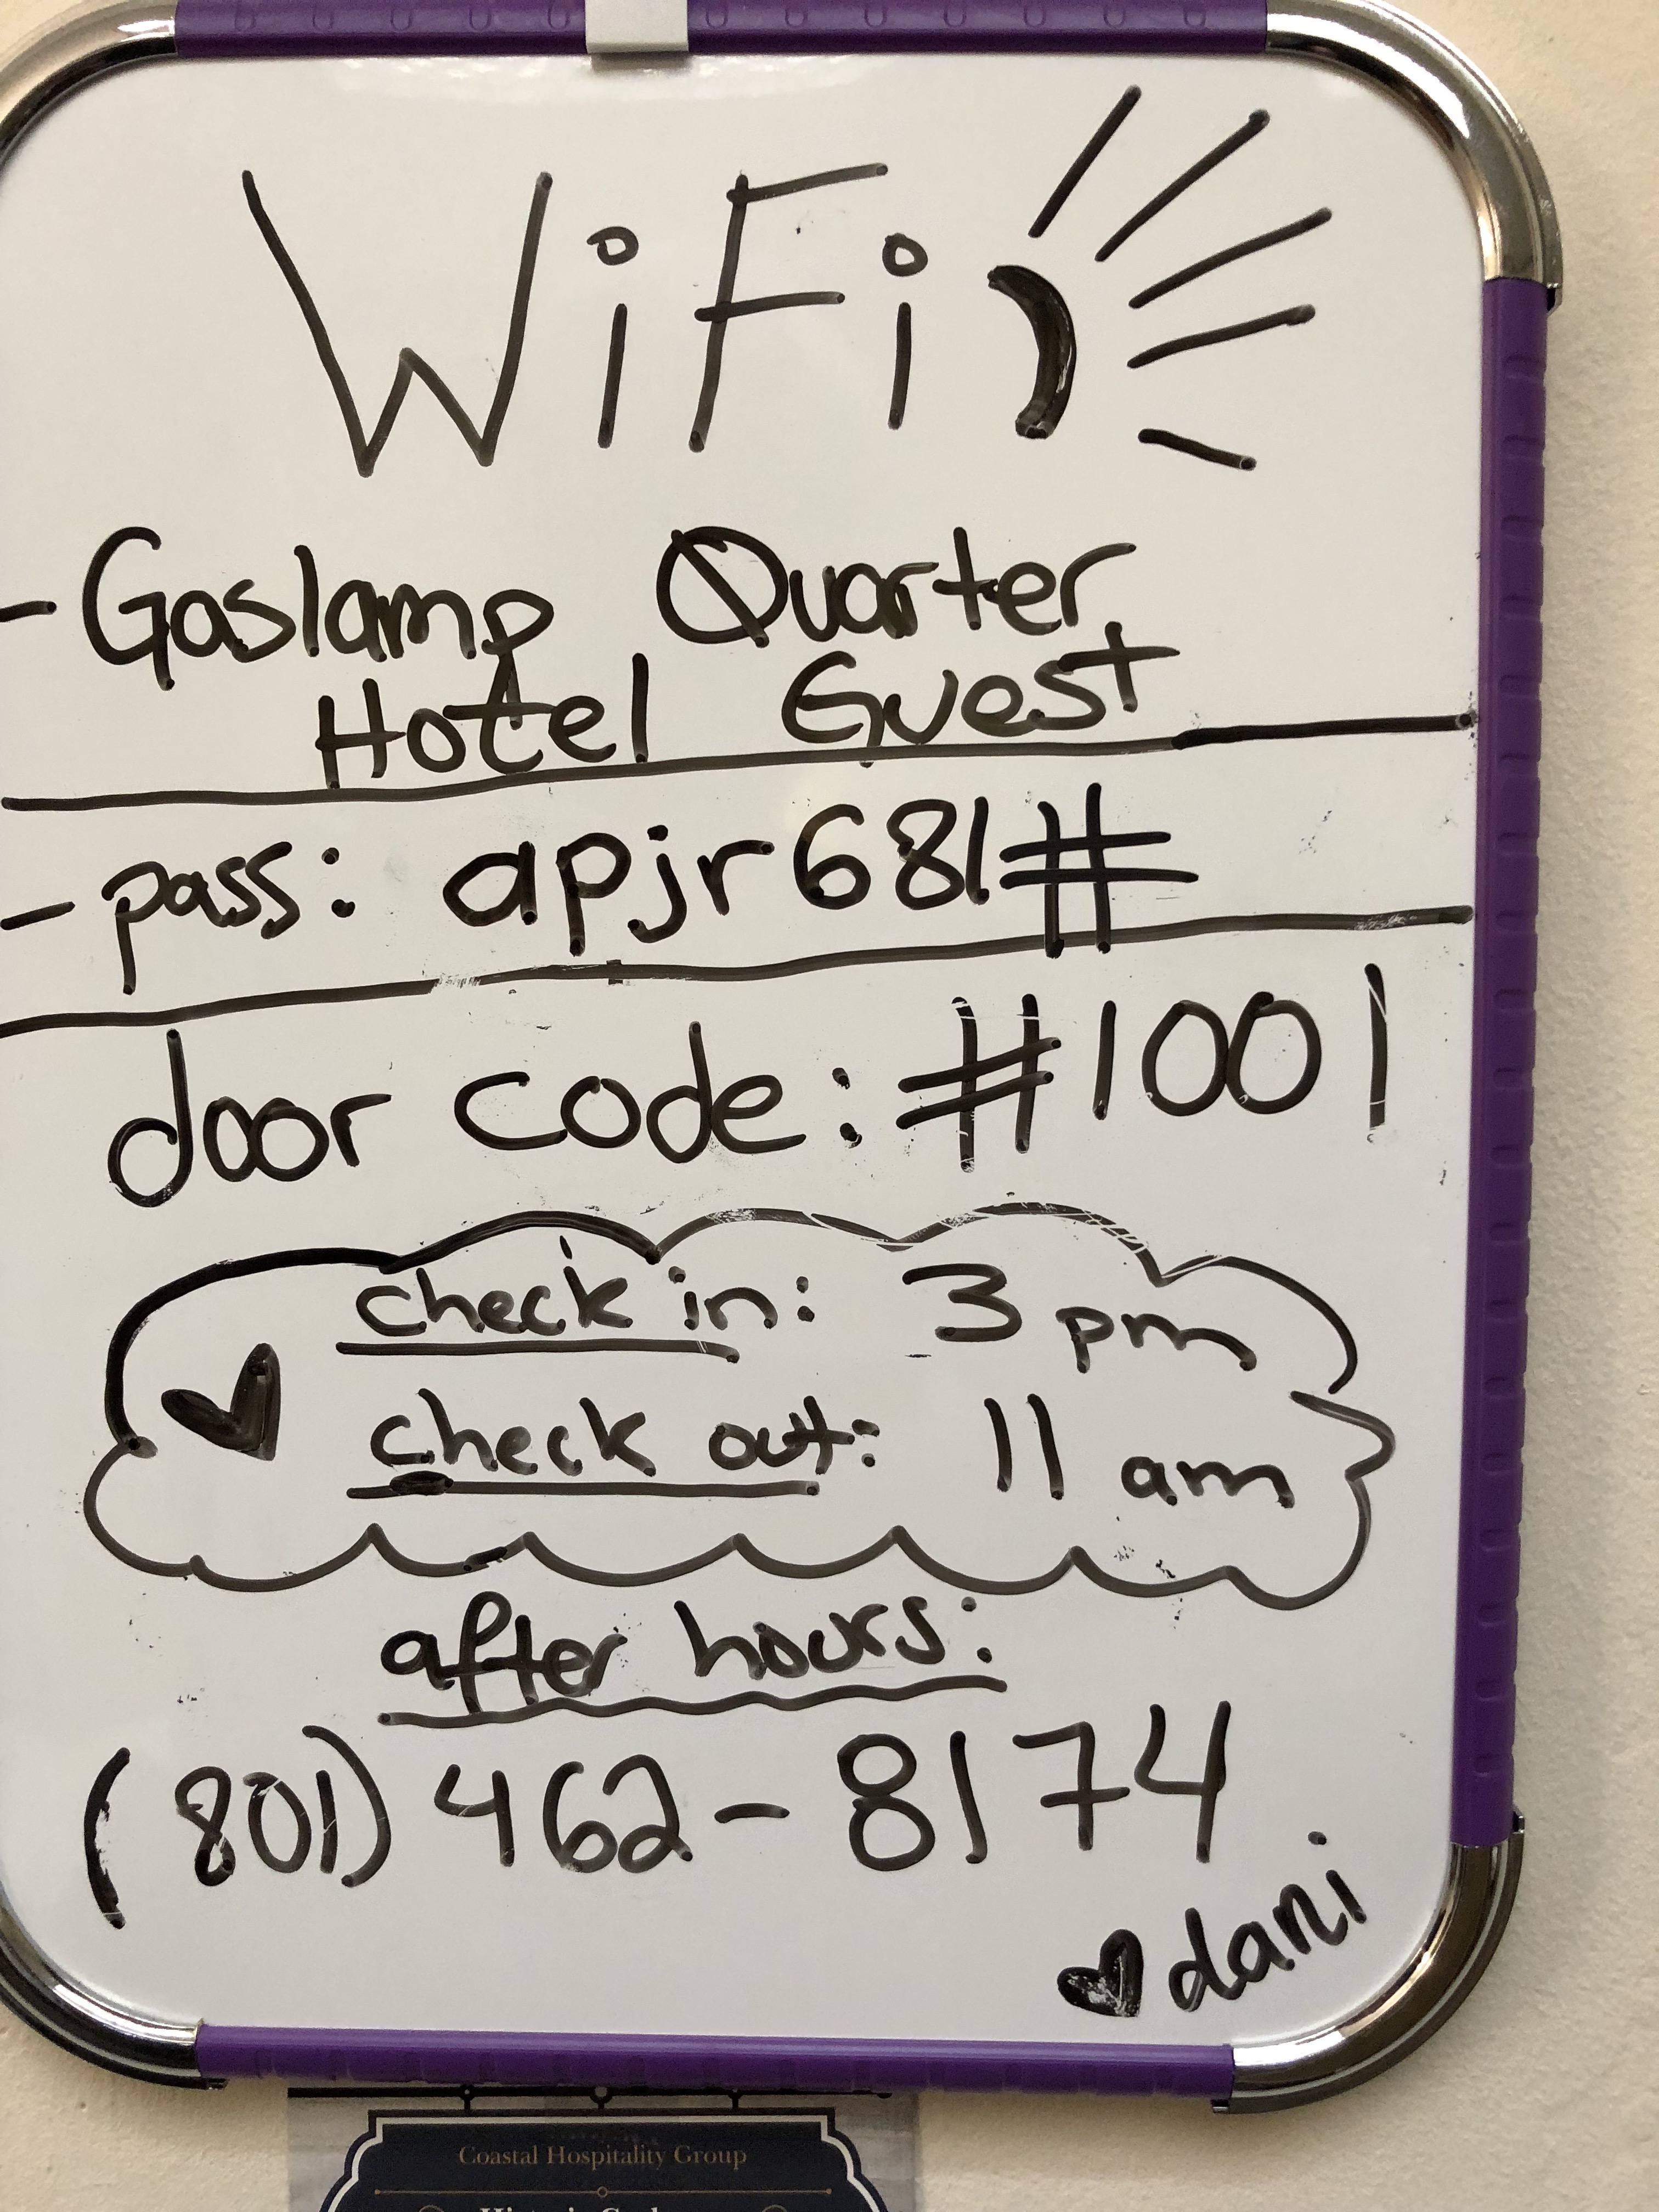 WiFi
- Gaslamp Quarter
Hotel Guest
- pass: apjr681#
door code: #1001
check in: 3 pm
check out: 11 am
after hours:
(801) 462-8174
dani
Coastal Hospitality Group